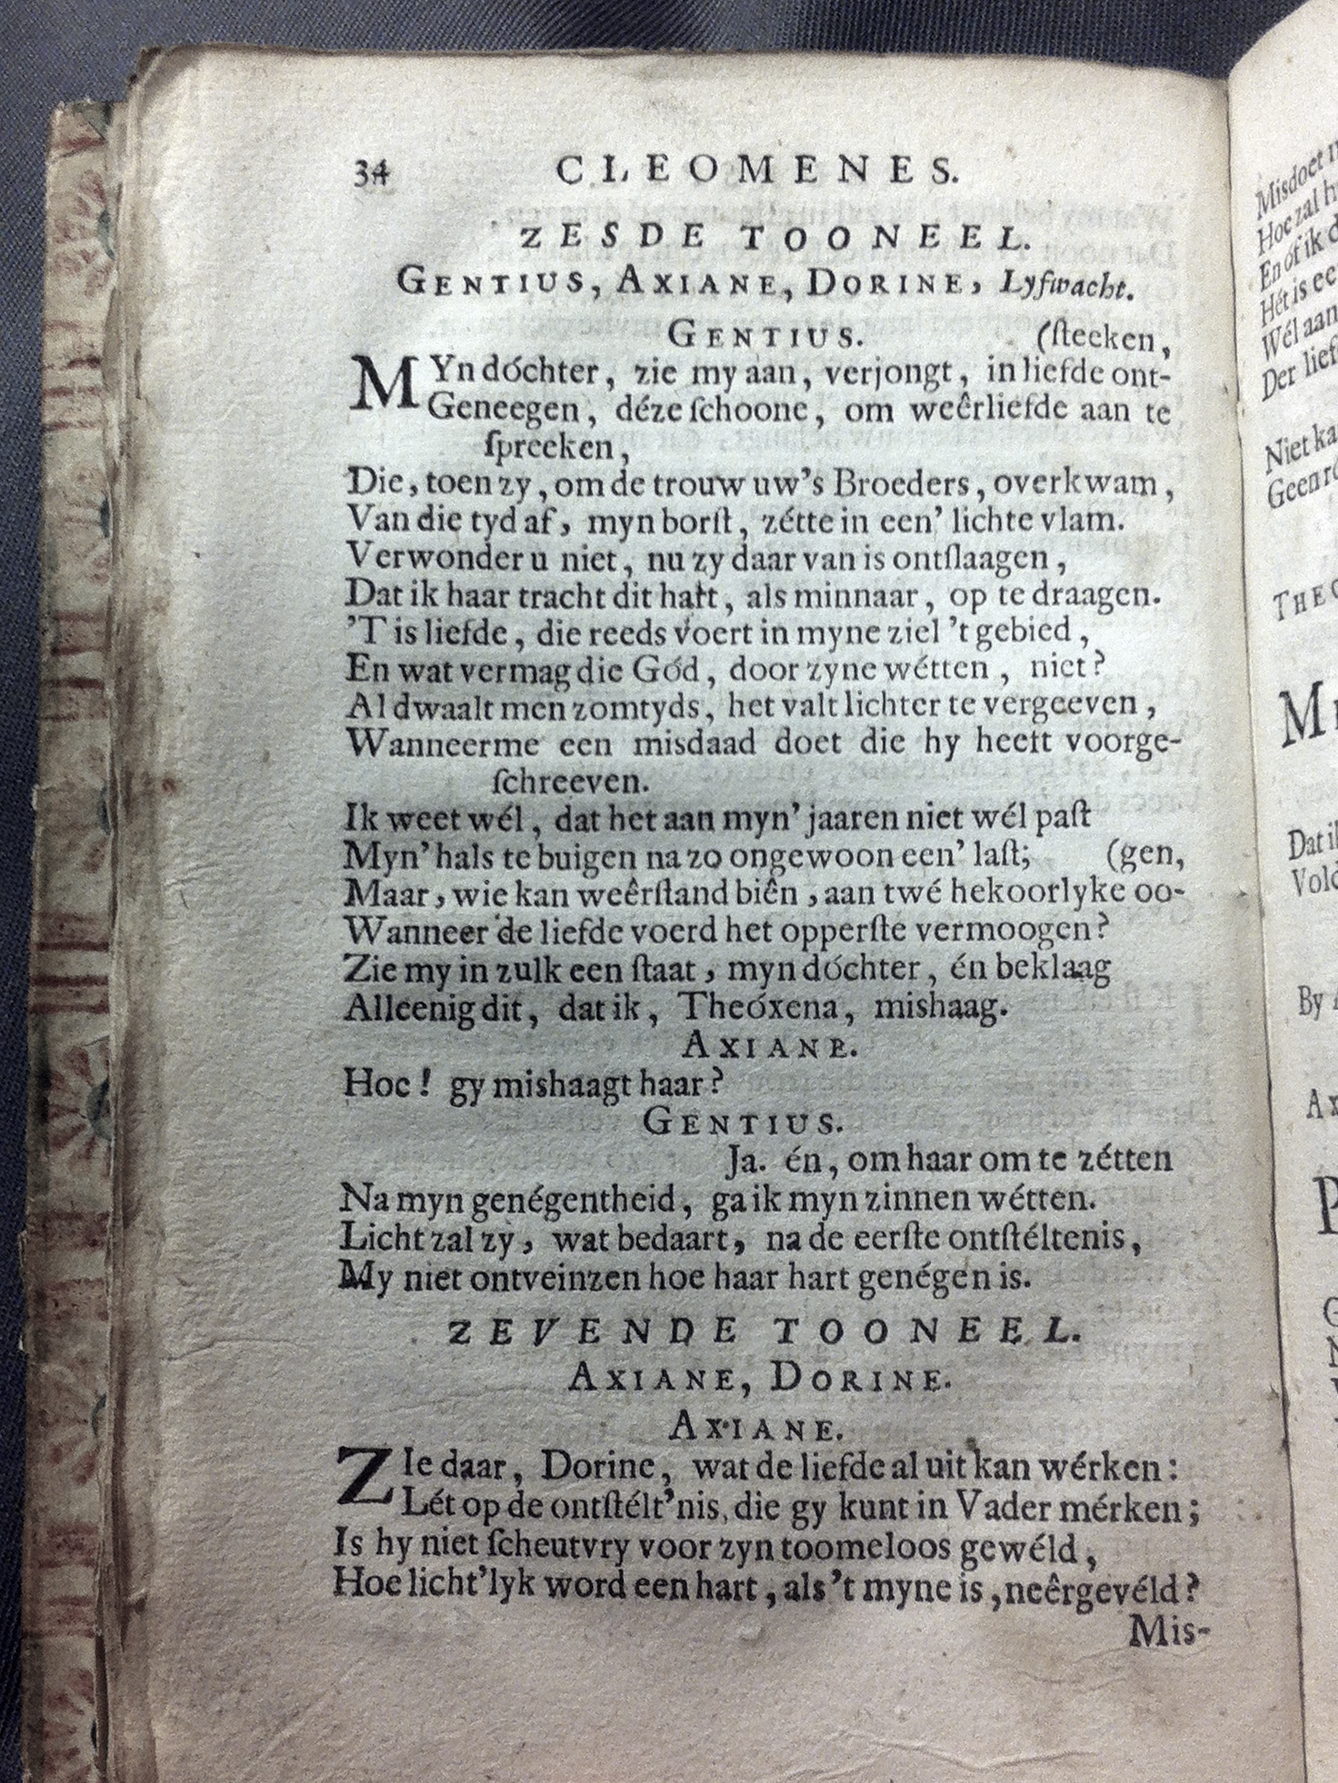 34 CLEOMENES.
ZESDE TOONEEL.
GENTIUS, AXIANE, DORINE, Lyfwacht.
GENTIUS. (ſteeken,
MYn dóchter, zie my aan, verjongt, in liefde ont-
Geneegen, déze ſchoone, om weêrliefde aan te
ſpreeken,
Die, toen zy, om de trouw uw's Broeders, overkwam,
Van die tyd af, myn borſt, zétte in een' lichte vlam.
Verwonder u niet, nu zy daar van is ontſlaagen,
Dat ik haar tracht dit hart, als minnaar, op te draagen.
'T is liefde, die reeds voert in myne ziel 't gebied,
En wat vermag die Gód, door zyne wétten, niet?
Al dwaalt men zomtyds, het valt lichter te vergeeven,
Wanneerme een misdaad doet die hy heeft voorge-
ſchreeven.
Ik weet wél, dat het aan myn' jaaren niet wél paſt
Myn' hals te buigen na zo ongewoon een' laſt; (gen,
Maar, wie kan weêrſtand biên, aan twé hekoorlyke oo-
Wanneer de liefde voerd het opperſte vermoogen?
Zie my in zulk een ſtaat, myn dóchter, én beklaag
Alleenig dit, dat ik, Theóxena, mishaag.
AXIANE.
Hoe! gy mishaagt haar?
GENTIUS.
Ja. én, om haar om te zétten
Na myn genégentheid, ga ik myn zinnen wétten.
Licht zal zy, wat bedaart, na de eerſte ontſtéltenis,
My niet ontveinzen hoe haar hart genégen is.
ZEVENDE TOONEEL.
AXIANE, DORINE.
AXIANE.
ZIe daar, Dorine, wat de liefde al uit kan wérken:
Lét op de ontſtélt'nis, die gy kunt in Vader mérken;
Is hy niet ſcheutvry voor zyn toomeloos gewéld,
Hoe licht'lyk word een hart, als 't myne is, neêrgevéld?
Mis-
Misdoet
Hoe zal
En óf ik
Hét is ee
Wél aan
Der lief
Niet ka
Geen
THEO
M
Dat
By